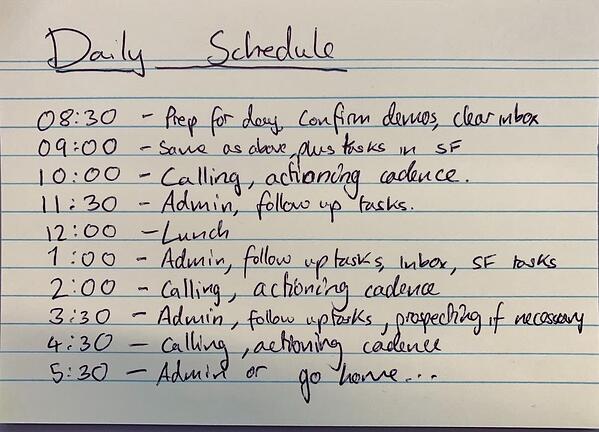 Daily Schedule
08:30 - Prep for day, confirm demos, clear inbox
09:00 - Same as above, plus tasks in SF
10:00 - Calling, actioning cadence.
11:30 - Admin, follow up tasks.
12:00 - Lunch
1:00 - Admin, follow up tasks, inbox, SF tasks
2:00 - Calling, actioning cadence
3:30 - Admin, follow up tasks, prospecting if necessary
4:30 - Calling, actioning cadence
5:30 - Admin or go home...